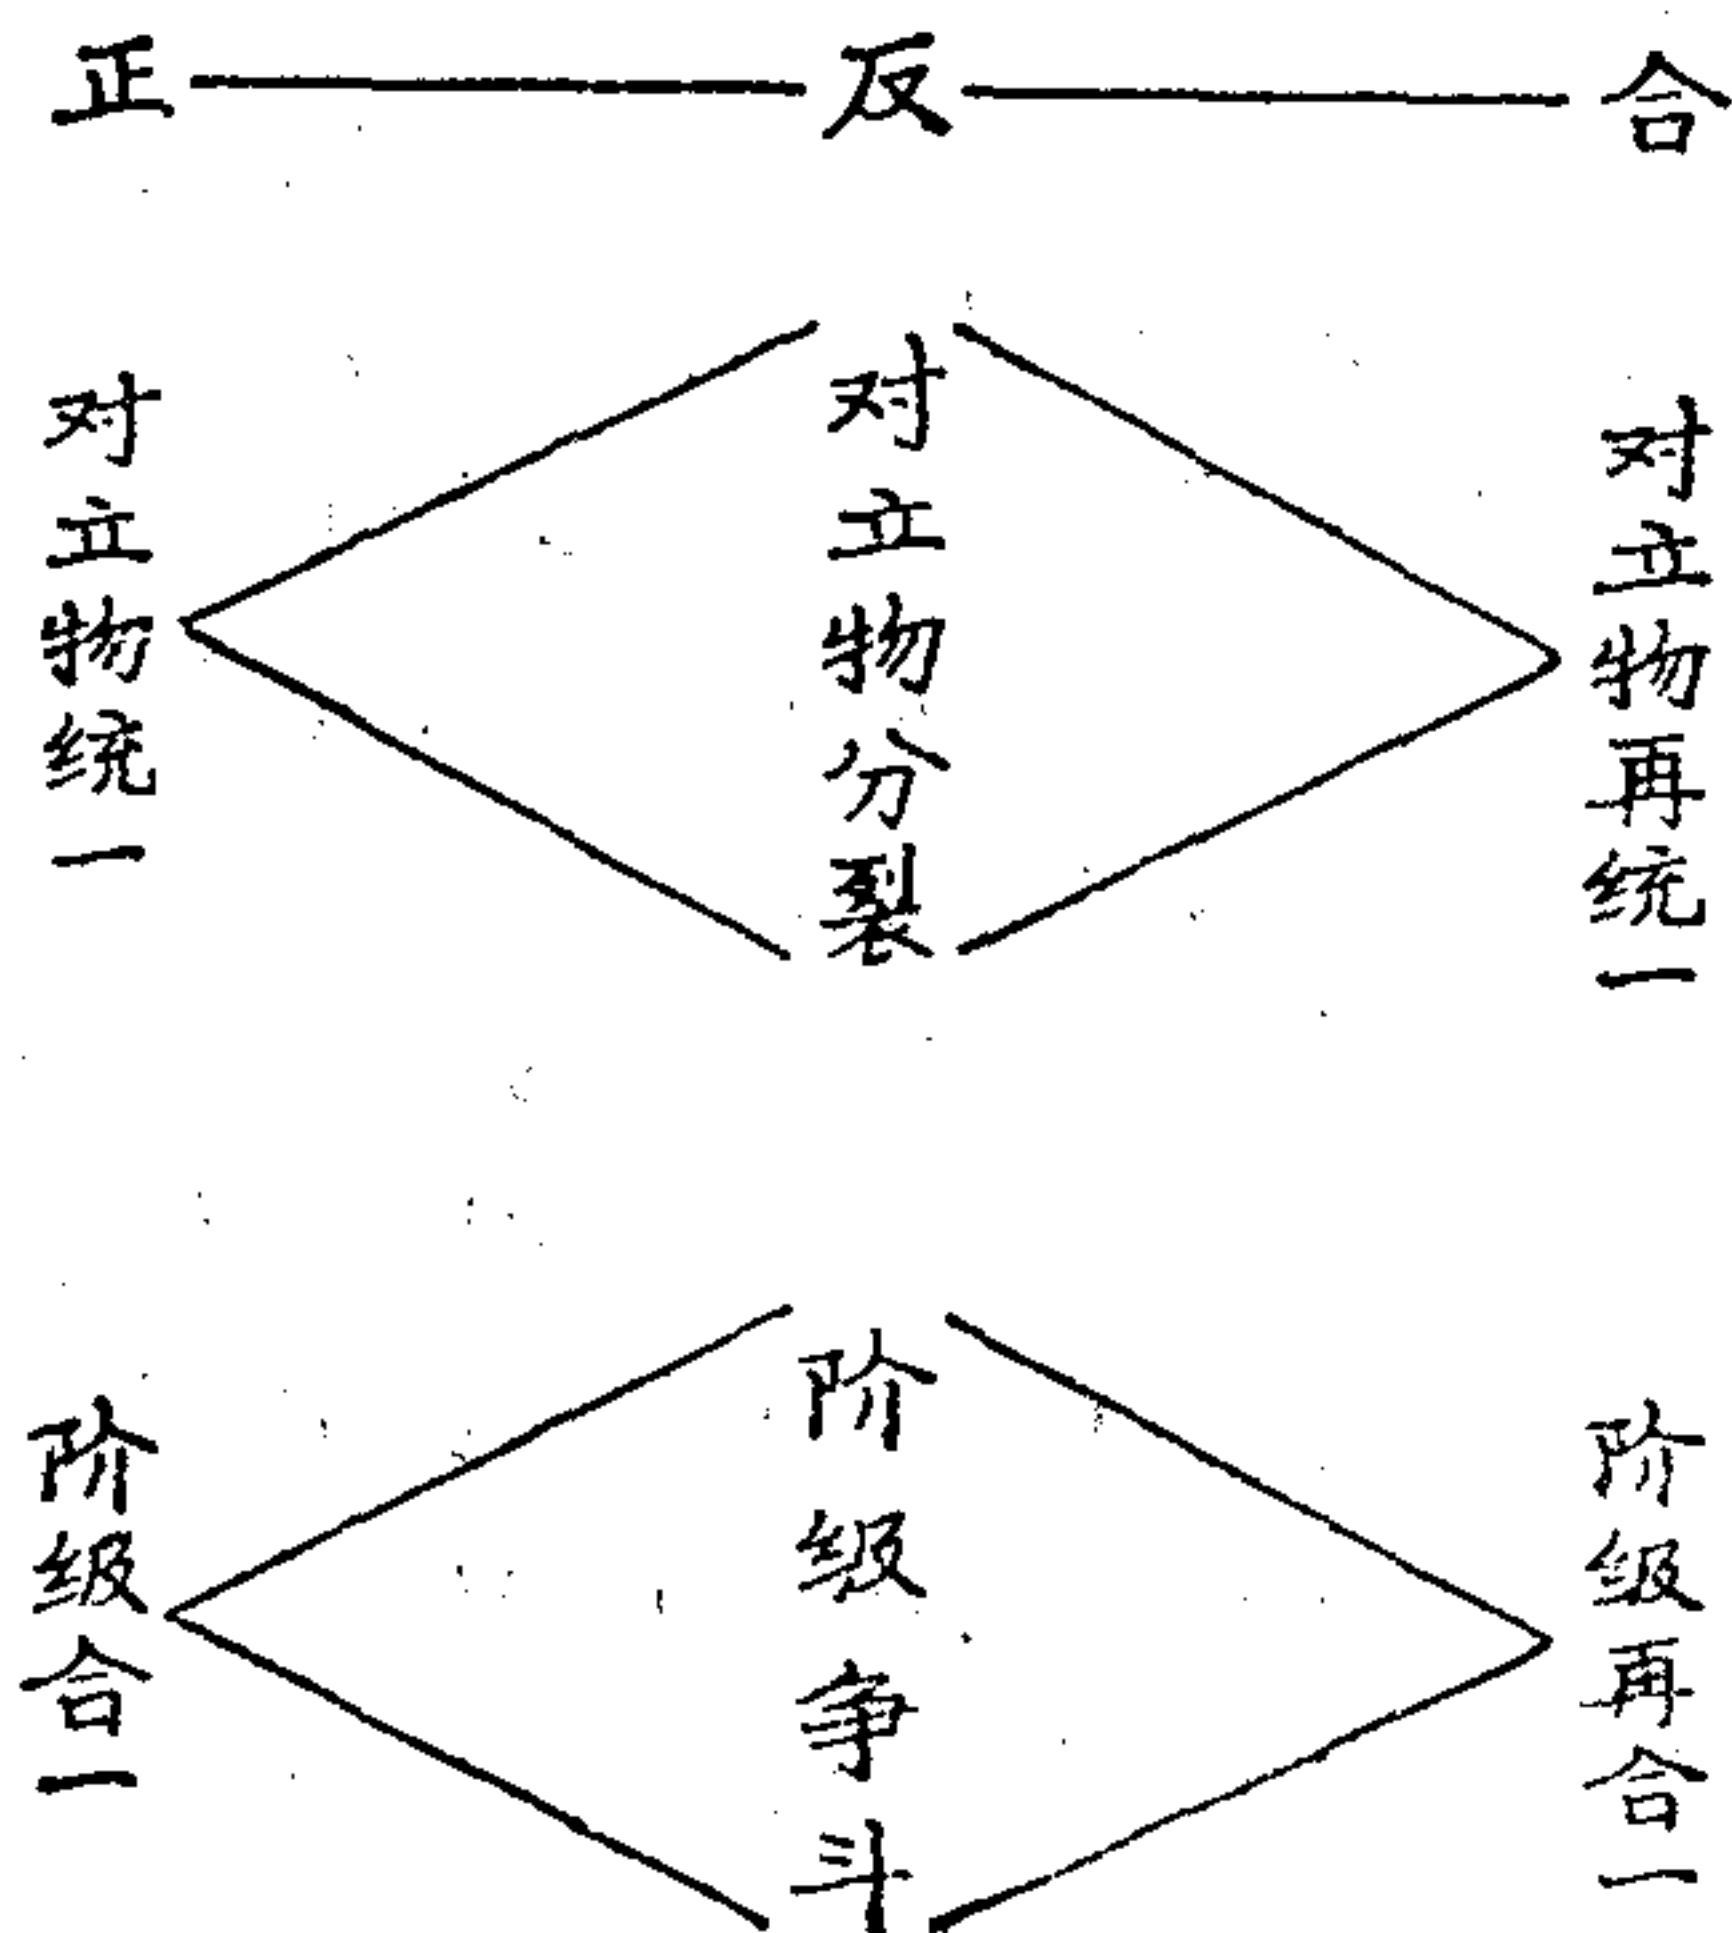 正 反 合
对立物统一
对立物分裂
对立物再统一
阶级合一
阶级争斗
阶级再合一